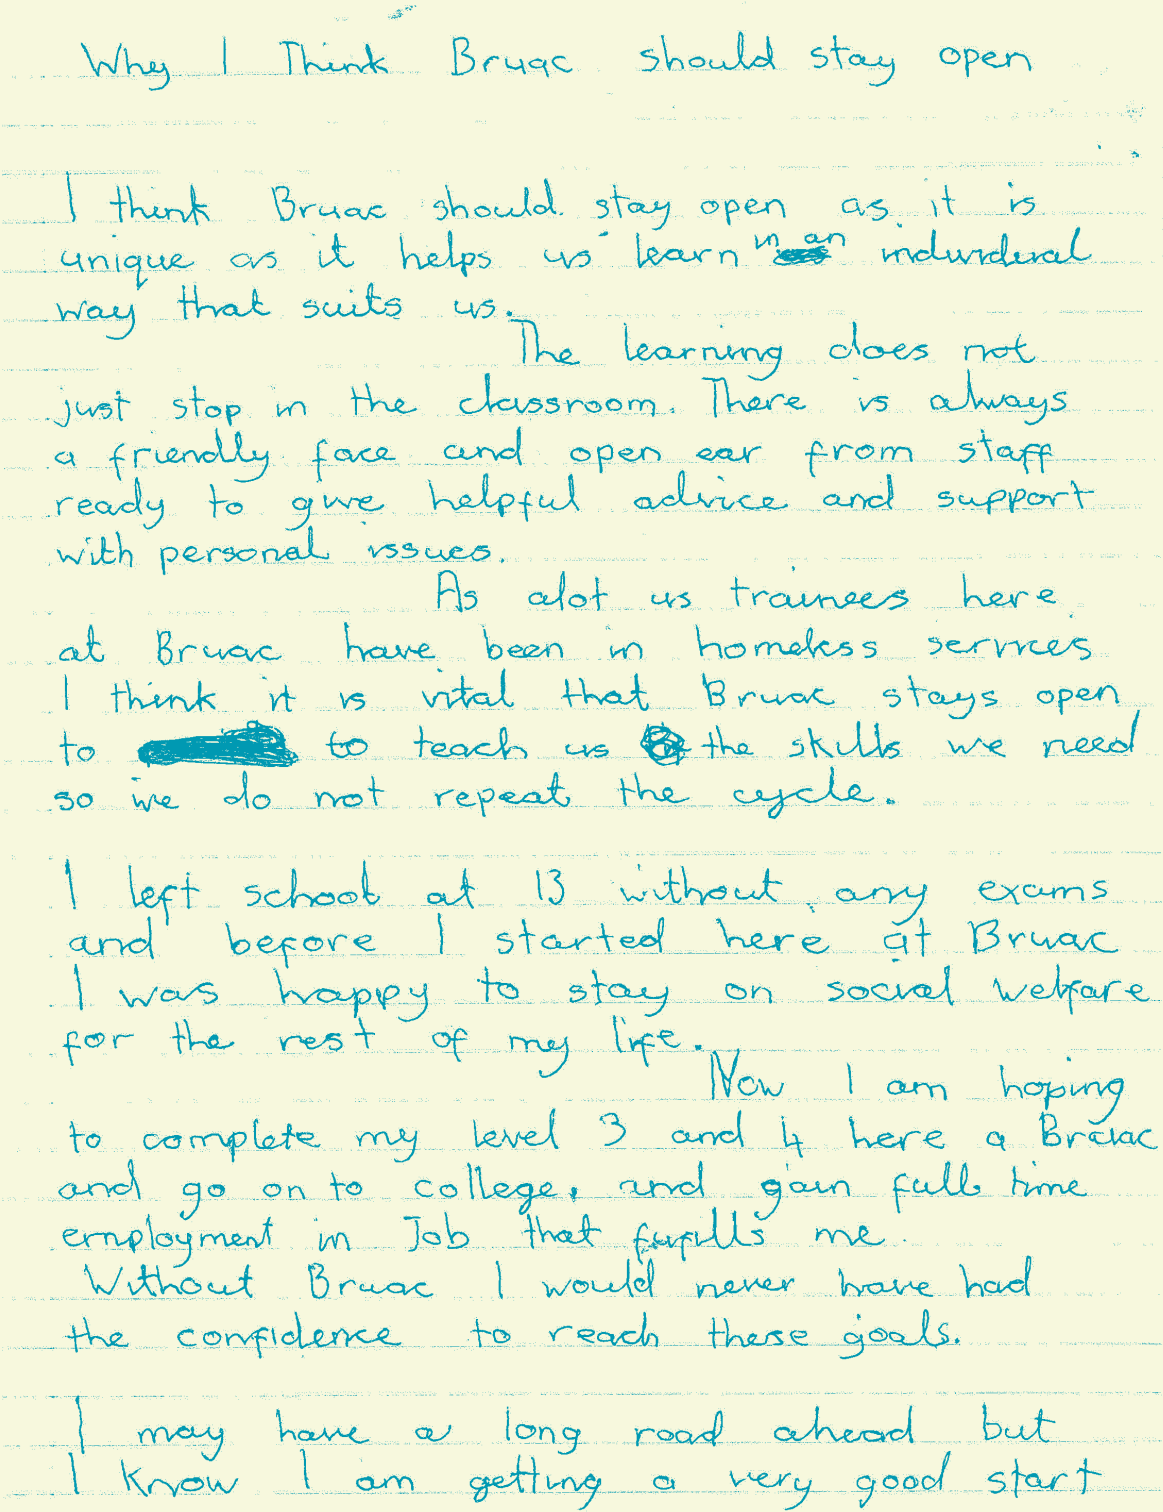 Why I Think Bruac should stay open
I think Bruac should stay open as it is
unique as it helps us learn in an indwideral
way that suits us.
The learning does not
just stop in the classroom. There is always
a friendly face and open ear from staff
ready to give helpful advice and support
with personal issues.
As alot us trainees here
at Bruac have been in homeless services
I think it is vital that Bruac stays open
to to teach us the skills we need
so we do not repeat the cycle.
I left school at 13 without any exams
and before I started here at Bruac
I was happy to stay on social welfare
for the rest of my life.
Now I am hoping
to complete my level 3 and 4 here a Bruac
and go on to college, and gain full time
employment in Job that fufills me.
Without Bruac I would never have had
the confidence to reach these goals.
I may have a long road ahead but
I know I am getting a very good start